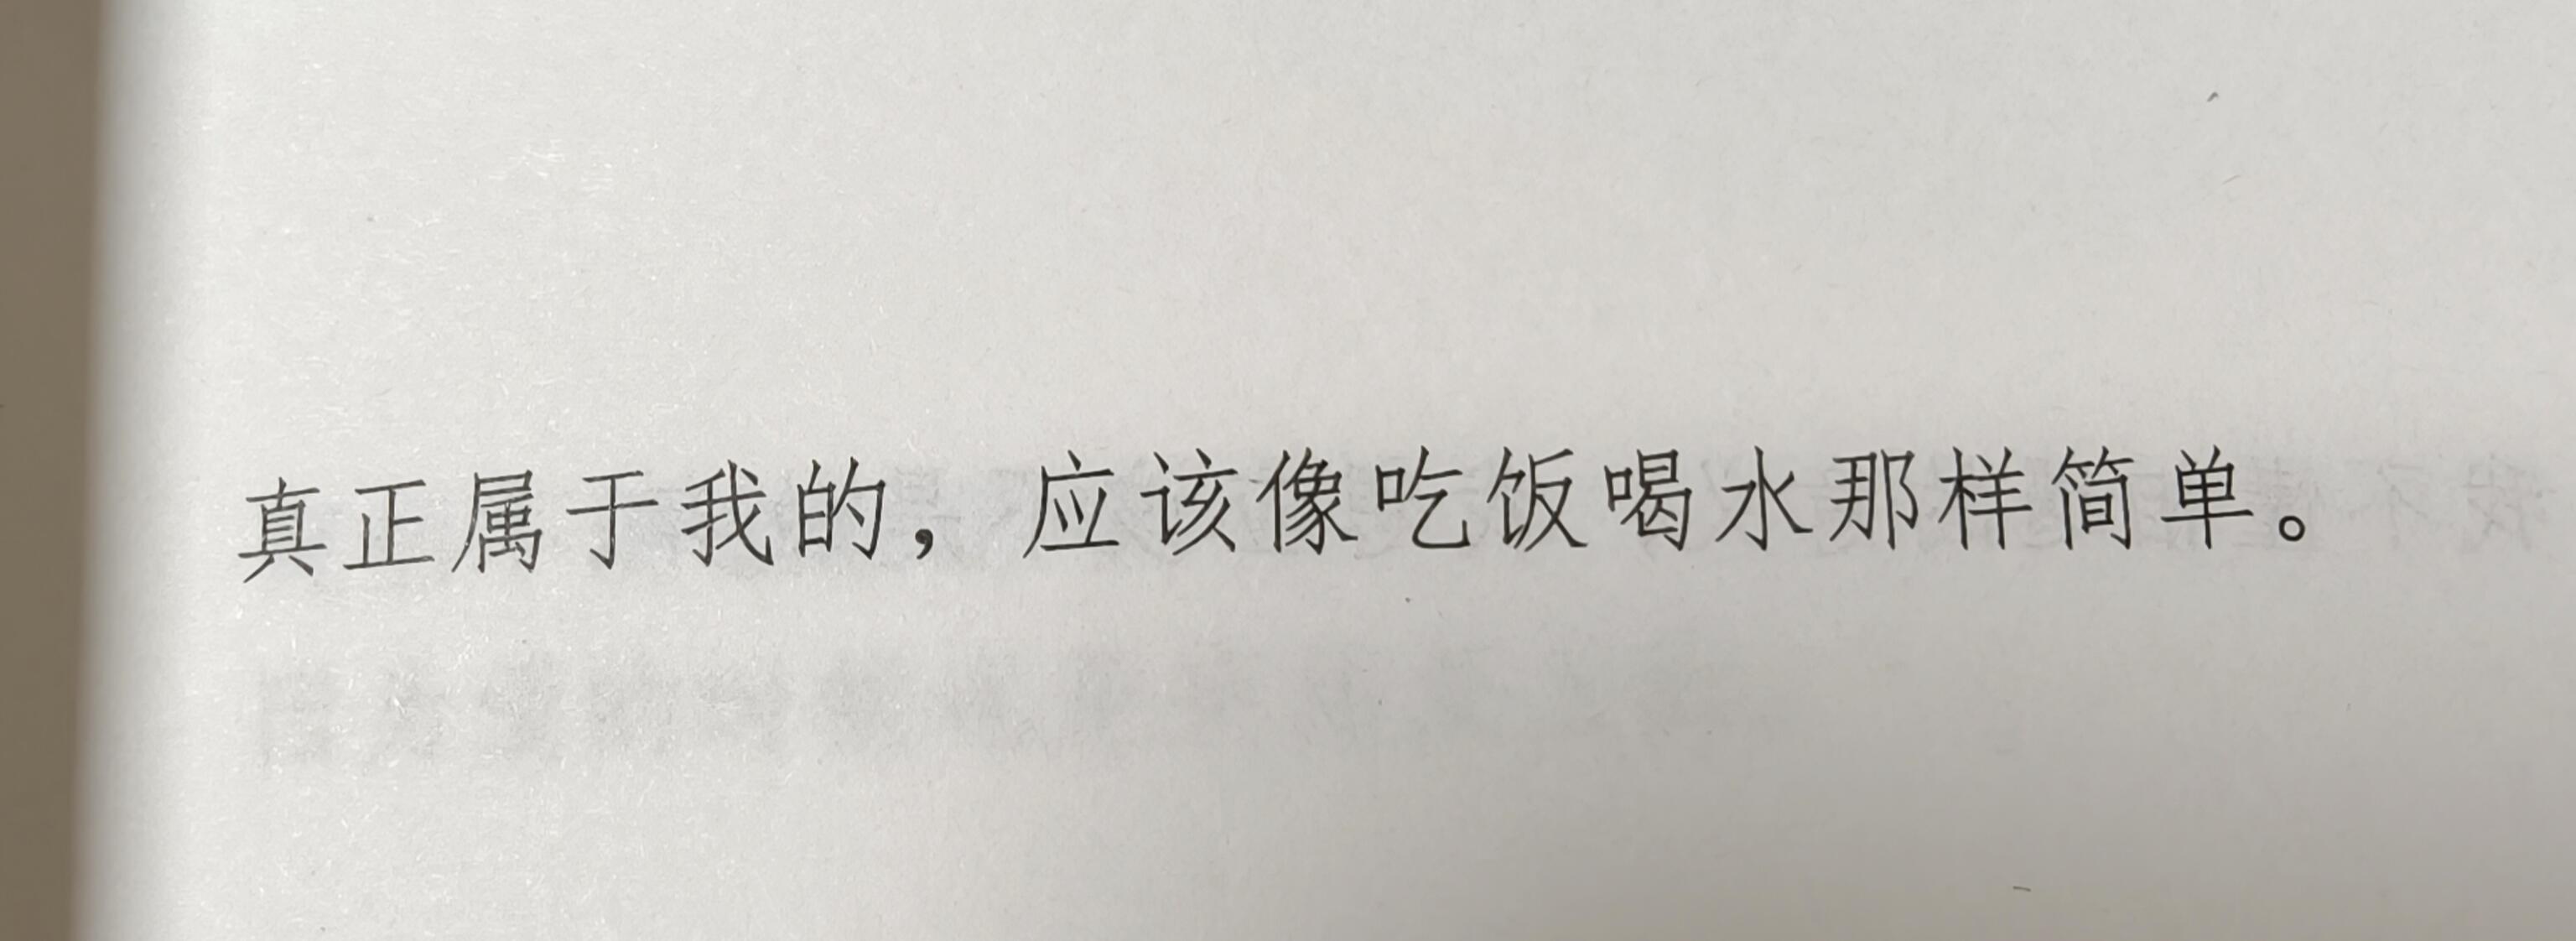 真正属于我的，应该像吃饭喝水那样简单。